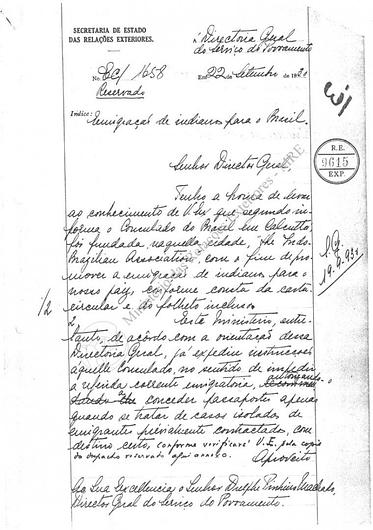 SECRETARIA DE ESTADO
DAS RELAÇÕES EXTERIORES.
Á Directoria Geral
do Serviço do Povoamento
No EC/ 1658
Em 22 de Setembro de 1930
Reservado
Indice: Emigração de indianos para o Brasil.
R.E.
9615
EXP.
Senhor Director Geral,
Tenho a honra de levar
ao conhecimento de V. Ex. que, segundo in-
forma o Consulado do Brasil em Calcuttá,
foi fundada naquella cidade, The Indo-
Brazilian Association, com o fim de pro-
mover a emigração de indianos para o
nosso paiz, conforme consta da carta-
circular e do folheto inclusos.
1/2
2
Este Ministerio, entre-
tanto, de accôrdo com a orientação dessa
Directoria Geral, já expediu instrucções
áquelle Consulado, no sentido de impedir
a referida corrente emigratoria, autorizando-o
a conceder passaportes apenas
quando se tratar de casos isolados de
emigrantes previamente contractados, com
destino certo, conforme verificará V. E. pela copia
do despacho reservado aqui annexo.
Aproveito
A Sua Excellencia o Senhor Dulphe Pinheiro Machado,
Director Geral do Serviço do Povoamento.
Ministério das Relações Exteriores - MRE